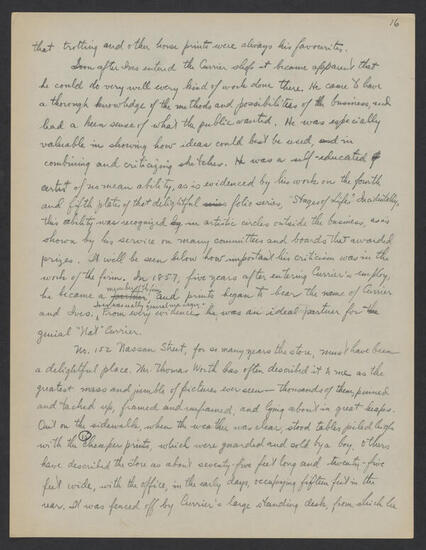 16
that trotting and other horse prints were always his favourites.
Soon after Ives entered the Currier shop it became apparent that
he could do very well every kind of work done there. He came to have
a thorough knowledge of the methods and possibilities of the business, and
had a keen sense of what the public wanted. He was especially
valuable in showing how ideas could best be used, and in
combining and criticizing sketches. He was a self-educated
artist of no mean ability, as is evidenced by his work on the fourth
and fifth plates of that delightful folio series, "Stages of Life". Incidentally,
this ability was recognized in artistic circles outside the business, as is
shown by his service on many committees and boards that awarded
prizes. It will be seen below how important his criticism was in the
work of the firm. In 1857, five years after entering Currier's employ,
member of the firm
he became a partner, and prints began to bear the name of Currier
general manager.
and Ives. From every evidence, he was an ideal partner for the
genial "Nat" Currier.
Nr. 152 Nassau Street, for so many years the store, must have been
a delightful place. Mr. Thomas Worth has often described it to me as the
greatest mass and jumble of pictures ever seen — thousands of them, pinned
and tacked up, framed and unframed, and lying about in great heaps.
Out on the sidewalk, when the weather was clear, stood tables piled high
with the cheaper prints, which were guarded and sold by a boy. Others
have described the store as about seventy-five feet long and twenty-five
feet wide, with the office, in the early days, occupying fifteen feet in the
rear. It was fenced off by Currier's large standing desk, from which he